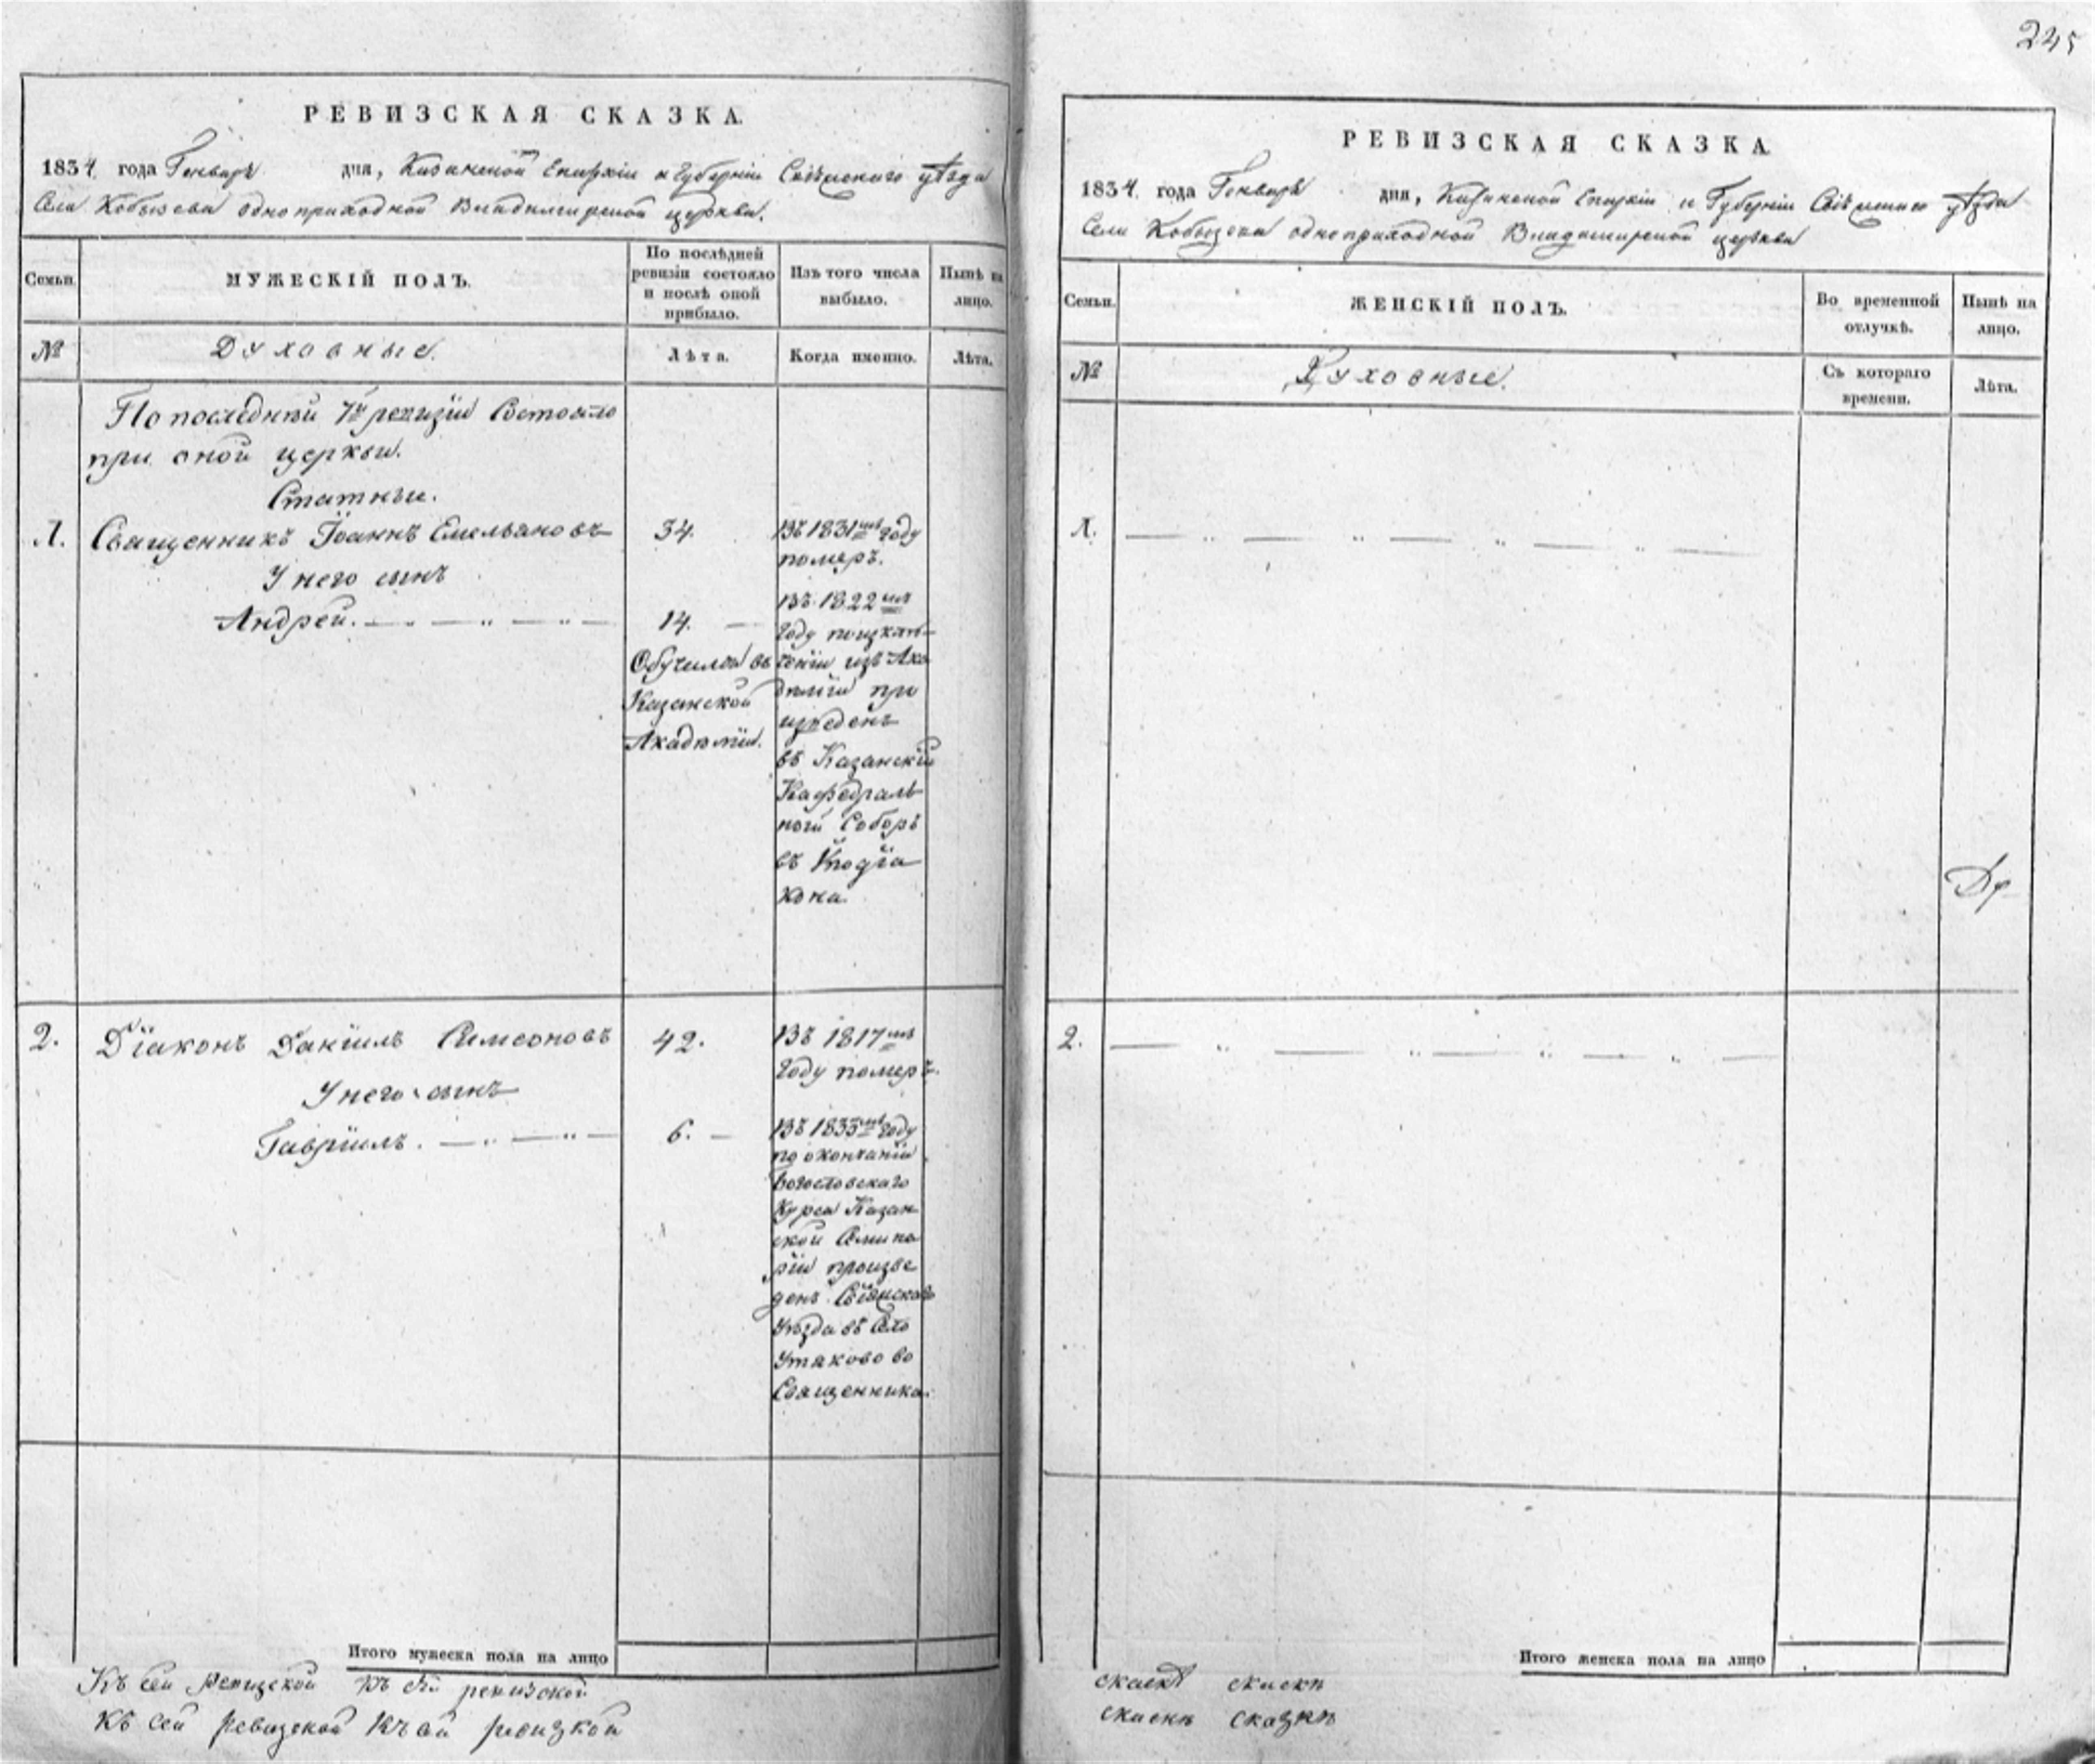 245
РЕВИЗСКАЯ СКАЗКА.
1834 года Генваря дня, Казанской Епархіи и Губерніи Свіяжского уѣзда
Села Кобызева одноприходной Владимирской церкви.
Семьи.
МУЖЕСКІЙ ПОЛЪ.
По послѣдней
ревизіи состояло
и послѣ оной
прибыло.
Изъ того числа
выбыло.
Нынѣ на
лицо.
№
Духовные.
Лѣта.
Когда именно.
Лѣта.
По последнѣй 7й ревизіи Состояло
при оной церкви.
Статные.
1.
Священникъ Іоаннъ Емельяновъ
34.
Въ 1831мъ году
померъ.
У него сынъ
Андрей.
14.
Обучился въ
Казанской
Академіи.
Въ 1822мъ
году по исклю
ченіи изъ Ака
деміи при
изведенъ
въ Казанскій
Кафедраль
ной Соборъ
въ Иподіа
кона
2.
Діаконъ Даніилъ Симеоновъ
42.
Въ 1817мъ
году померъ.
У него сынъ
Гавріилъ.
6.
Въ 1833мъ году
по окончаніи
Богословскаго
Курса Казан
ской Семина
ріи произве
денъ Свіяжскаго
Уѣзда въ Село
Утяково во
Священника.
Итого мужеска пола на лицо
Къ сей Ревизской Къ сей ревизской
Къ сей Ревизской Къ сей ревизкой
РЕВИЗСКАЯ СКАЗКА.
1834. года Генваря дня, Казанской Епархіи и Губерніи Свіяжского уѣзда
Села Кобызева одноприходной Владимирской церкви
Семьи.
ЖЕНСКІЙ ПОЛЪ.
Во временной
отлучкѣ.
Нынѣ на
лицо.
№
Духовные.
Съ котораго
времени.
Лѣта.
1.
2.
Итого женска пола на лицо
скаскѣ скаскѣ
скаскѣ сказкѣ